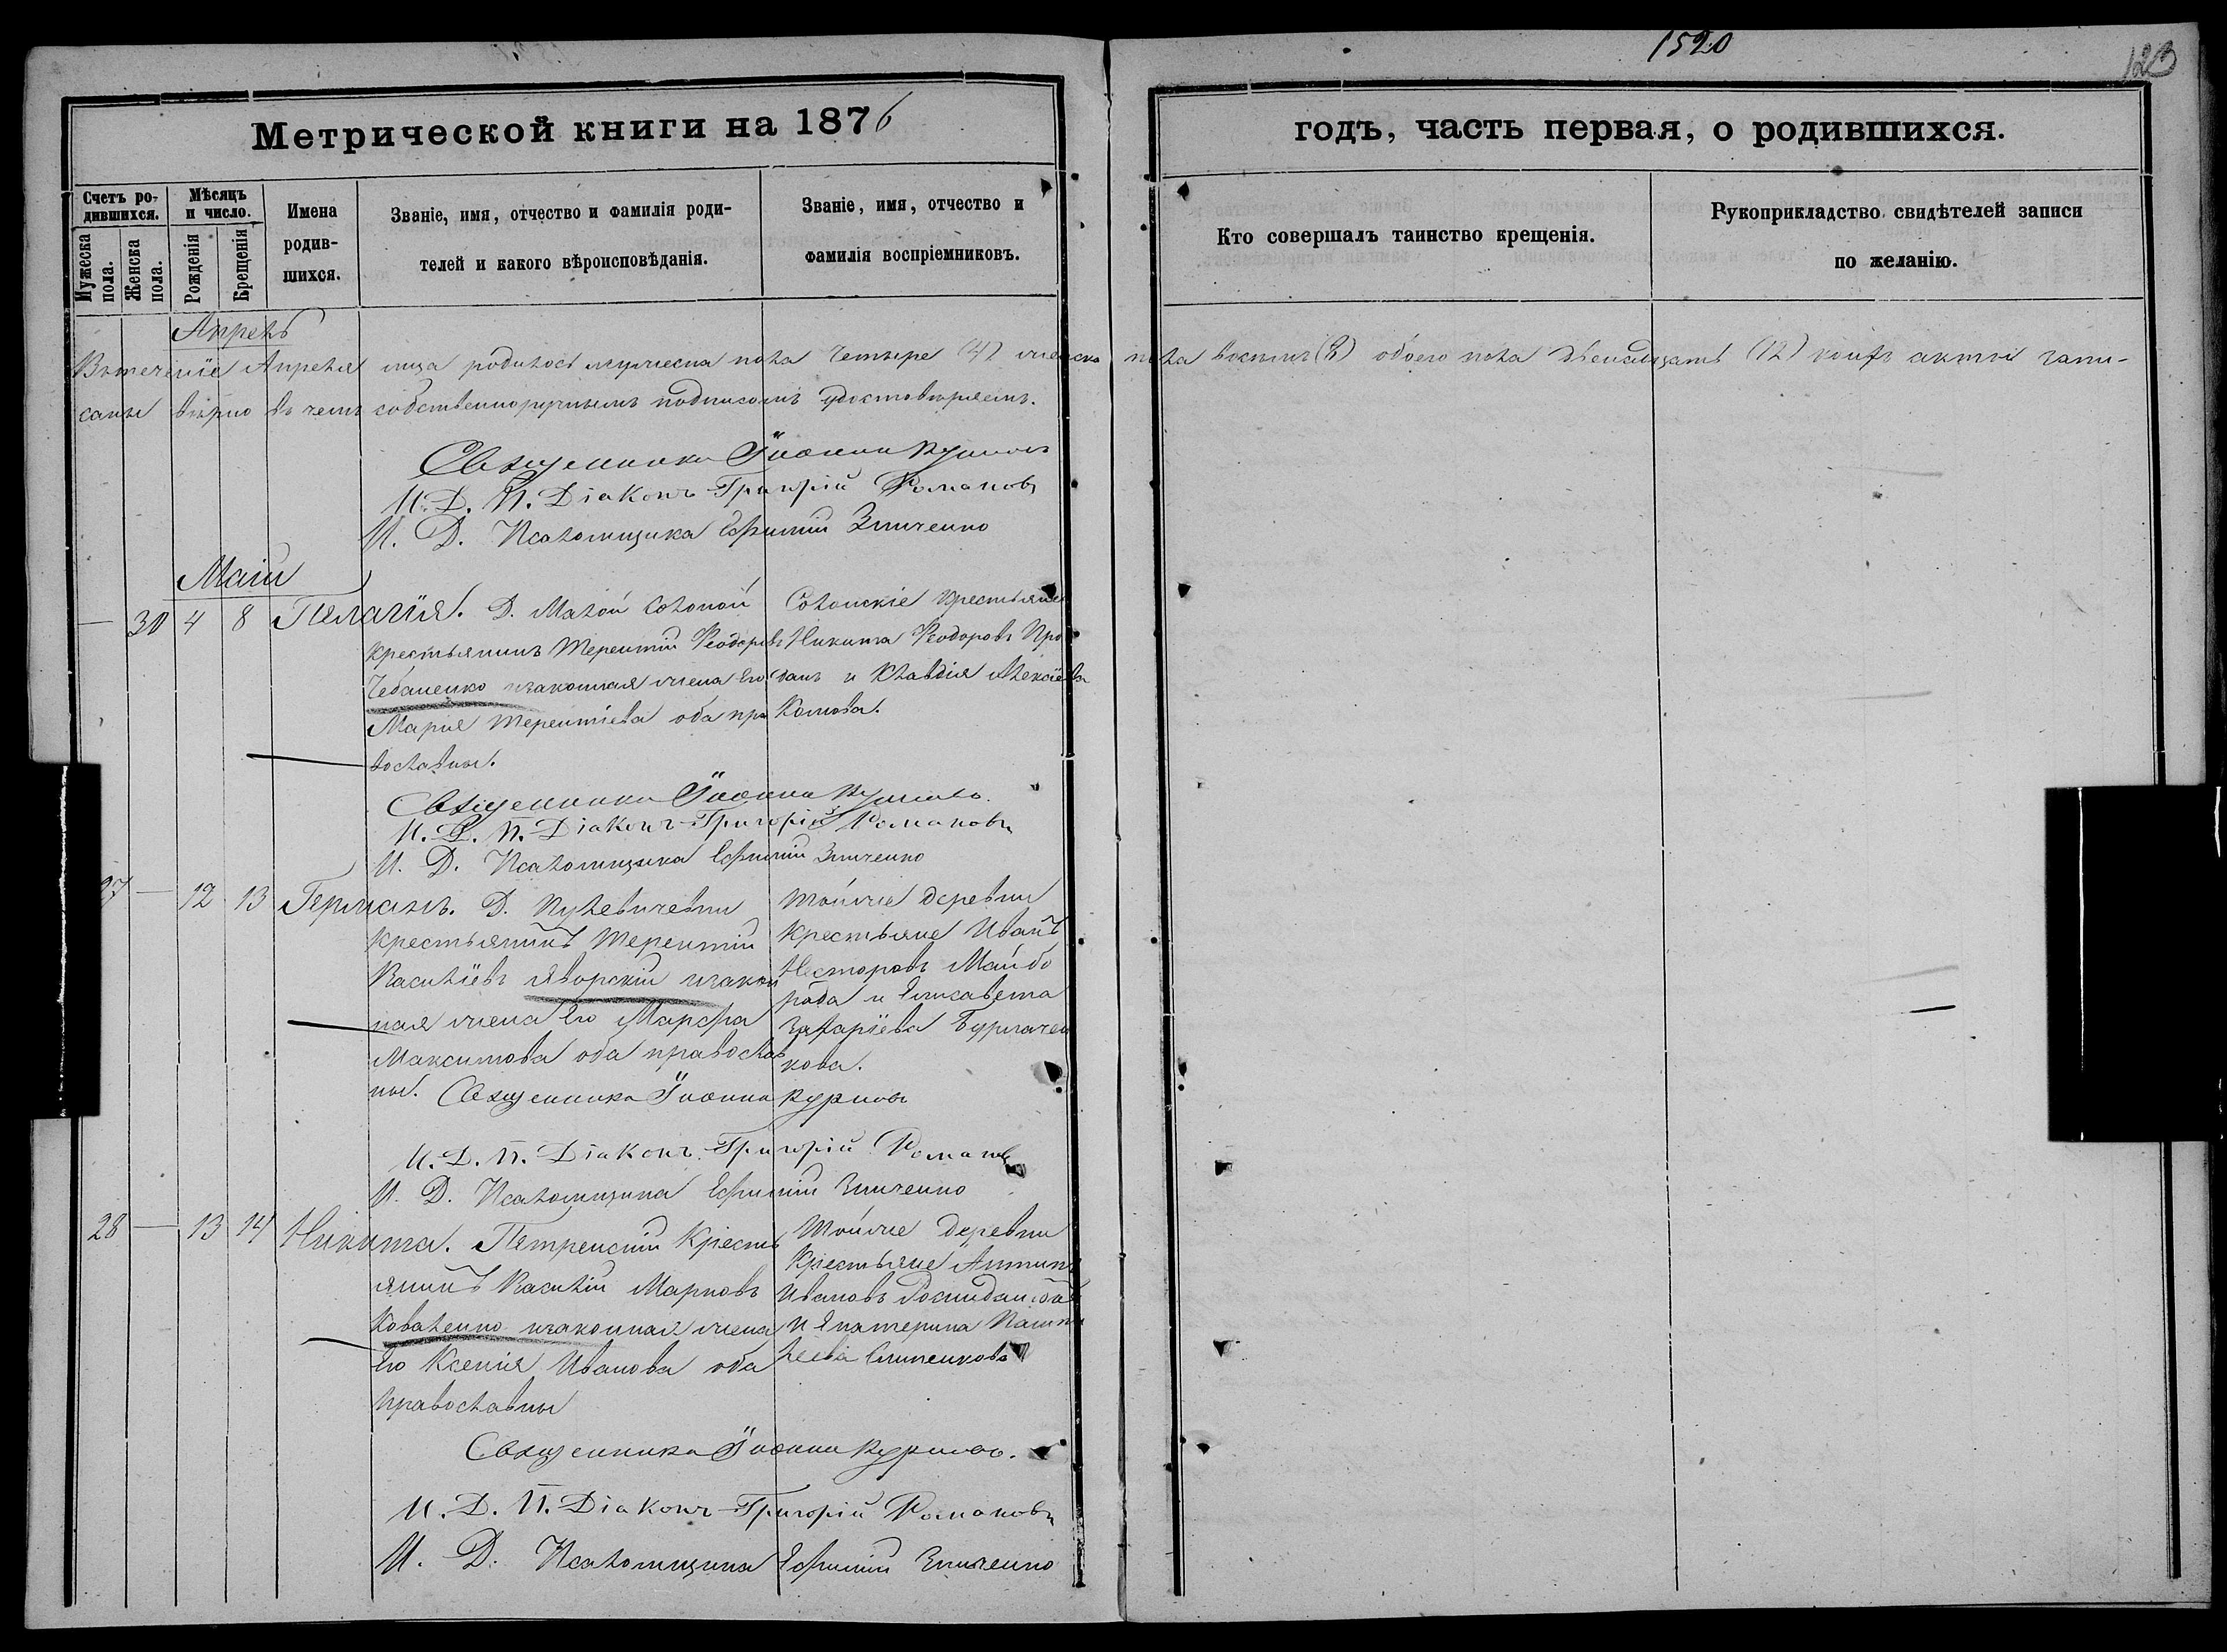 1520
123
Метрической книги на 1876
годъ, часть первая, о родившихся.
Счетъ родившихся.
Мужеска пола.
Женска пола.
Мѣсяцъ и число.
Рожденія
Крещенія
Имена родившихся.
Званіе, имя, отчество и фамилія родителей и какого вѣроисповѣданія.
Званіе, имя, отчество и фамилія воспріемниковъ.
Кто совершалъ таинство крещенія.
Рукоприкладство свидѣтелей записи по желанію.
Апрель
Въ теченіе Апреля родилось мужеска пола четыре (4) женска пола восемь (8) обоего пола двенадцать (12) акты запи-
саны вѣрно въ чемъ собственноручнымъ подписомъ удостовѣряемъ.
Священникъ Іоаннъ
И. Д. П. Діаконъ Григорій Романовъ
И. Д. Псаломщика Ефимій Зинченко
Маій
— 30 4 8 Пелагія. Д. Малой Солоной
крестьянинъ Терентій Феодоровъ
Чебаненко и законная жена его
Марія Терентіева оба пра
вославны.
Солонскіе крестьяне
Никита Феодоровъ Про
данъ и Клавдія Алексіева
Комова.
Священникъ Іоаннъ
И. Д. П. Діаконъ Григорій Романовъ
И. Д. Псаломщика Ефимій Зинченко
27 — 12 13 Германъ. Д. Кулевичевки
крестьянинъ Терентій
Василіевъ Яворскій и закон
ная жена его Марфа
Максимова оба православ
ны.
Той же деревни
крестьяне Иванъ
Несторовъ Майбо
рода и Елисавета
Захаріева Бурлачен
кова.
Священникъ Іоаннъ
И. Д. П. Діаконъ Григорій Романовъ
И. Д. Псаломщика Ефимій Зинченко
28 — 13 14 Никита. Петренскій Кресть
янинъ Василій Марковъ
Коваленко и законная жена
его Ксенія Иванова оба
православны
Той же деревни
Крестьяне
Ивановъ
и Екатерина
Священникъ Іоаннъ
И. Д. П. Діаконъ Григорій Романовъ
И. Д. Псаломщика Ефимій Зинченко